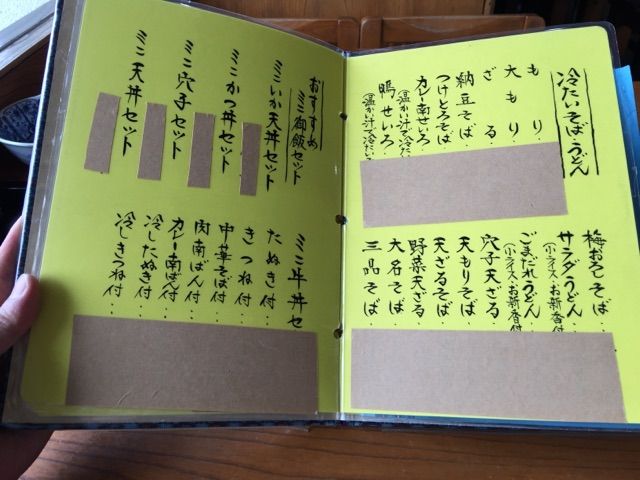 冷たいそば・うどん
もり・
大もり・
ざる・
納豆そば・
つけとろそば
カレー南せいろ・
(温かい汁で冷たい
鴨せいろ・
(温かい汁で冷たい
梅おろしそば・
サラダうどん
(小ライス・お新香付
ごまだれうどん
(小ライス・お新香付
穴子天ざる・
天もりそば・
天ざるそば・
野菜天ざる・
大名そば・
三品そば・
おすすめ
ミニ御飯セット
ミニいか天丼セット
ミニかつ丼セット
ミニ穴子セット
ミニ天丼セット
ミニ牛丼セ
たぬき付・
きつね付・
中華そば付・
肉南ばん付・
カレー南ばん付
冷したぬき付・
冷しきつね付・